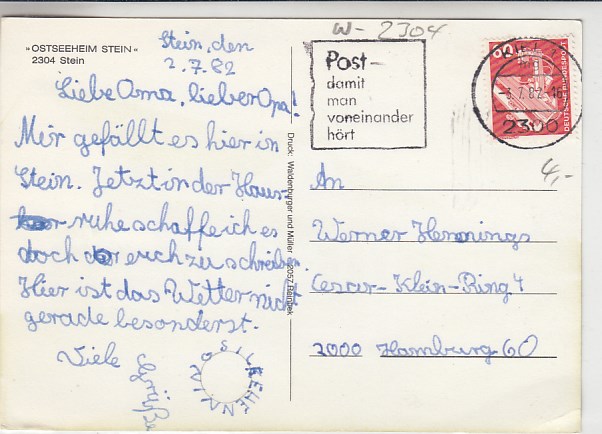 W-2304
»OSTSEEHEIM STEIN«
2304 Stein
Stein, den
2.7.82
Liebe Oma, lieber Opa!
Mir gefällt es hier in
Stein. Jetzt in der Haus-
ruhe schaffe ich es
doch euch zu schreiben.
Hier ist das Wetter nicht
gerade besonderst.
Viele
Grüße
Druck: Waldenburger und Müller 2057 Reinbek
Post-
damit
man
voneinander
hört
60
DEUTSCHE BUNDESPOST
-3.7.82-16
2300
4,-
An
Werner Hennings
Cesar-Klein-Ring 4
2000 Hamburg 60